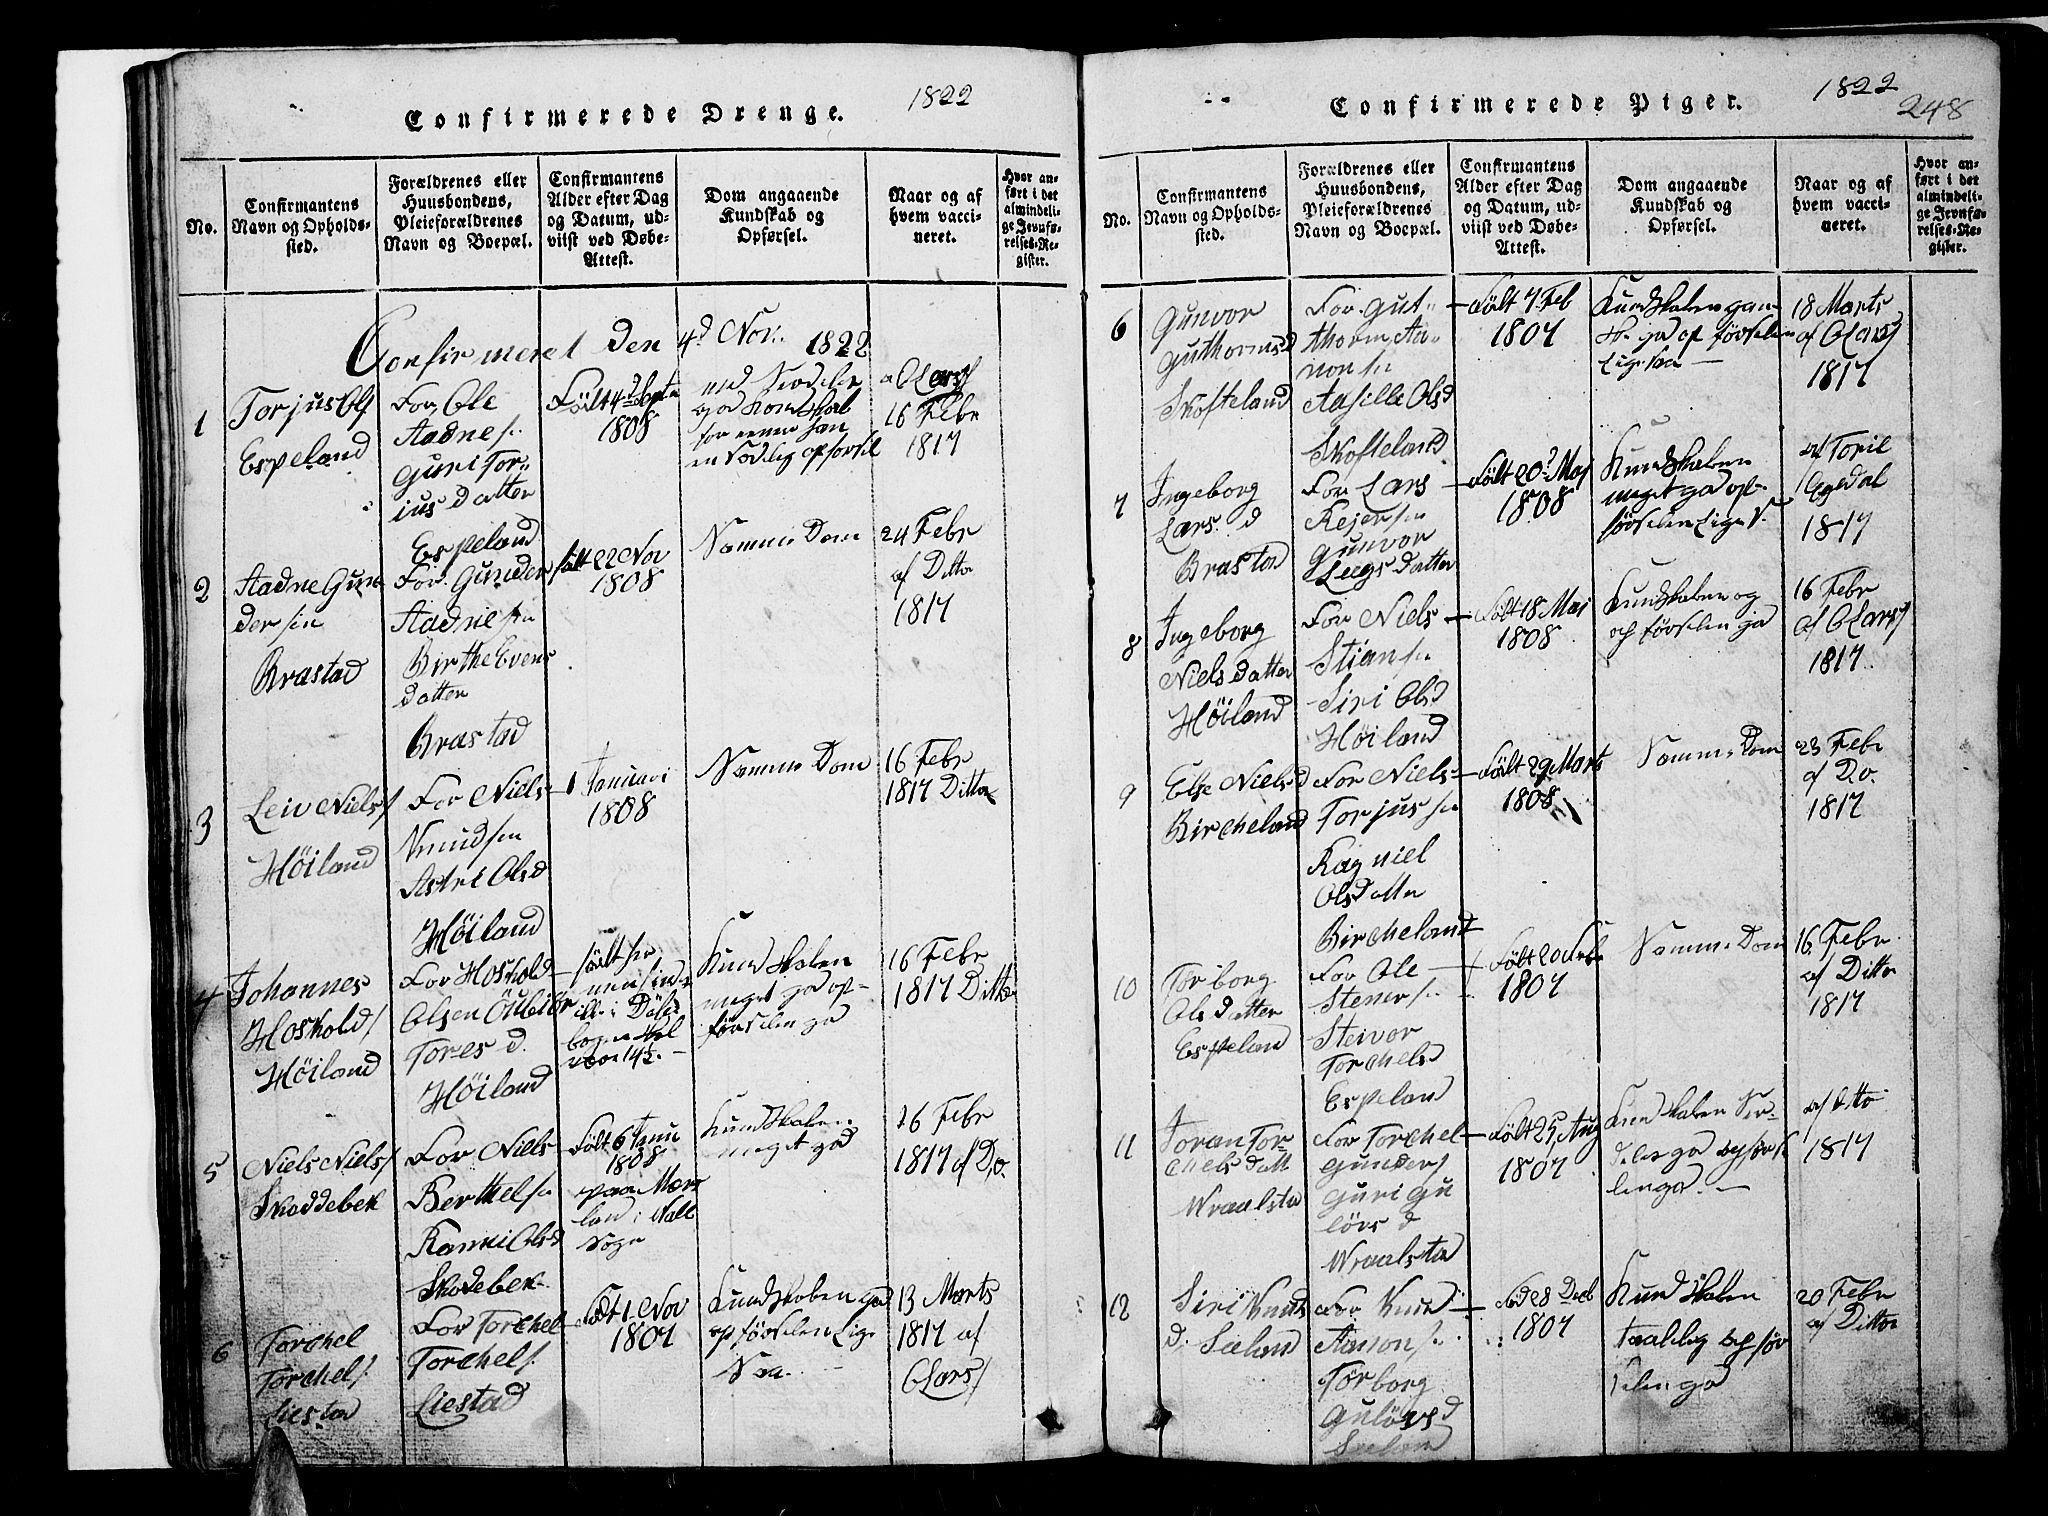 Confirmerede Drenge.
1822
No.
Confirmantens
Navn og Opholds-
sted.
Forældrenes eller
Huusbondens,
Pleieforældrenes
Navn og Boepæl.
Confirmantens
Alder efter Dag
og Datum, ud-
viist ved Døbe-
Attest.
Dom angaaende
Kundskab og
Opførsel.
Naar og af
hvem vacci-
neret.
Hvor an-
ført i det
almindeli-
ge Jevnfø-
relses-Re-
gister.
Confirmeret den 4d Nov. 1822
1
Torjus Ols
Espeland
For. Ole
Aadnes.
Guri Tor-
jus datter
Espeland
Født 4d Septe
1808
a O Lars/
16 Febr
1817
2
Aadne Gun
dersen
Brastad
For. Gunder
Aadnesen
Birthe Evens
datter
Brastad
født 22 Nov
1808
Samme Dom
24 Febr
af Ditto
1817
3
Leiv Niels/
Höiland
For Niels
Knudsen
Astri Olsd
Höiland
1 Januari
1808
Samme Dom
16 Febr
1817 Ditto
4
Johannes
Hoskold/
Höiland
For Hoskold
Olsen
Tores d.
Höiland
Kundskaben
meget god op-
förselen god
16 Febr
1817 Ditto
5
Niels Niels/
Skoddebek
For Niels
Berthels.
Ranni Olsd
Skodebek
Født 6 Janu
1808
Kundskaben
meget god
26 Febr
1817 af Do.
6
Torchel
Torchels/
Liestad
For Torchel
Torchels/
Liestad
Født 1 Nov
1807
Kundskaben god
opförselen Lige
Saa.
13 Marts
1817 af
O Lars/
Confirmerede Piger.
1822
248
No.
Confirmantens
Navn og Opholds-
sted.
Forældrenes eller
Huusbondens,
Pleieforældrenes
Navn og Boepæl.
Confirmantens
Alder efter Dag
og Datum, ud-
viist ved Døbe-
Attest.
Dom angaaende
Kundskab og
Opførsel.
Naar og af
hvem vacci-
neret.
Hvor an-
ført i det
almindeli-
ge Jevnfø-
relses-Re-
gister.
6
Gunvor
Guthormsd
Skofteland
For. Gut-
thorm Aa-
nons.
Aasille Olsd
Skofteland
Født 7 Feb
1807
18 Marts
af O Lars/
1817
7
Ingeborg
Lars. d
Brastad
For Lars
Rejers.
Gunvor
Leegs datter
Født 20d Maj
1808
Kundskaben
meget god op-
förselen Lige S.
af Toril
Egedal
1817
8
Ingeborg
Niels datter
Höiland
For Niels
Stians.
Siri Olsd
Höiland
Født 18 Mai
1808
Kundskaben og
opförselen god
16 Febr
af O Lars/
1817
9
Else Nielsd
Bircheland
For Niels
Torjus.
Ragniel
Olsdatter
Bircheland
Født 29 Marts
1808
Samme Dom
23 Febr
af Do.
1817
10
Torborg
Olsdatter
Espeland
For Ole
Steners.
Steivor
Torchelsd
Espeland
Født 20 Febr
1807
Samme Dom
16 Febr
af Ditto
1817
11
Joran Tor-
chels datt
Wraalsta
For Torchel
Gunders/
Guri Gu
lövs d
Wraalsta
Født 25 Aug
1807
af Ditto
1817
12
Siri Knuds
d. Seeland
For Knud
Aanons.
Torborg
Gulövsd
Seeland
Fød 28 Decb
1807
Kundskaben
taalelig opför
selen god
20 Febr
af Ditto